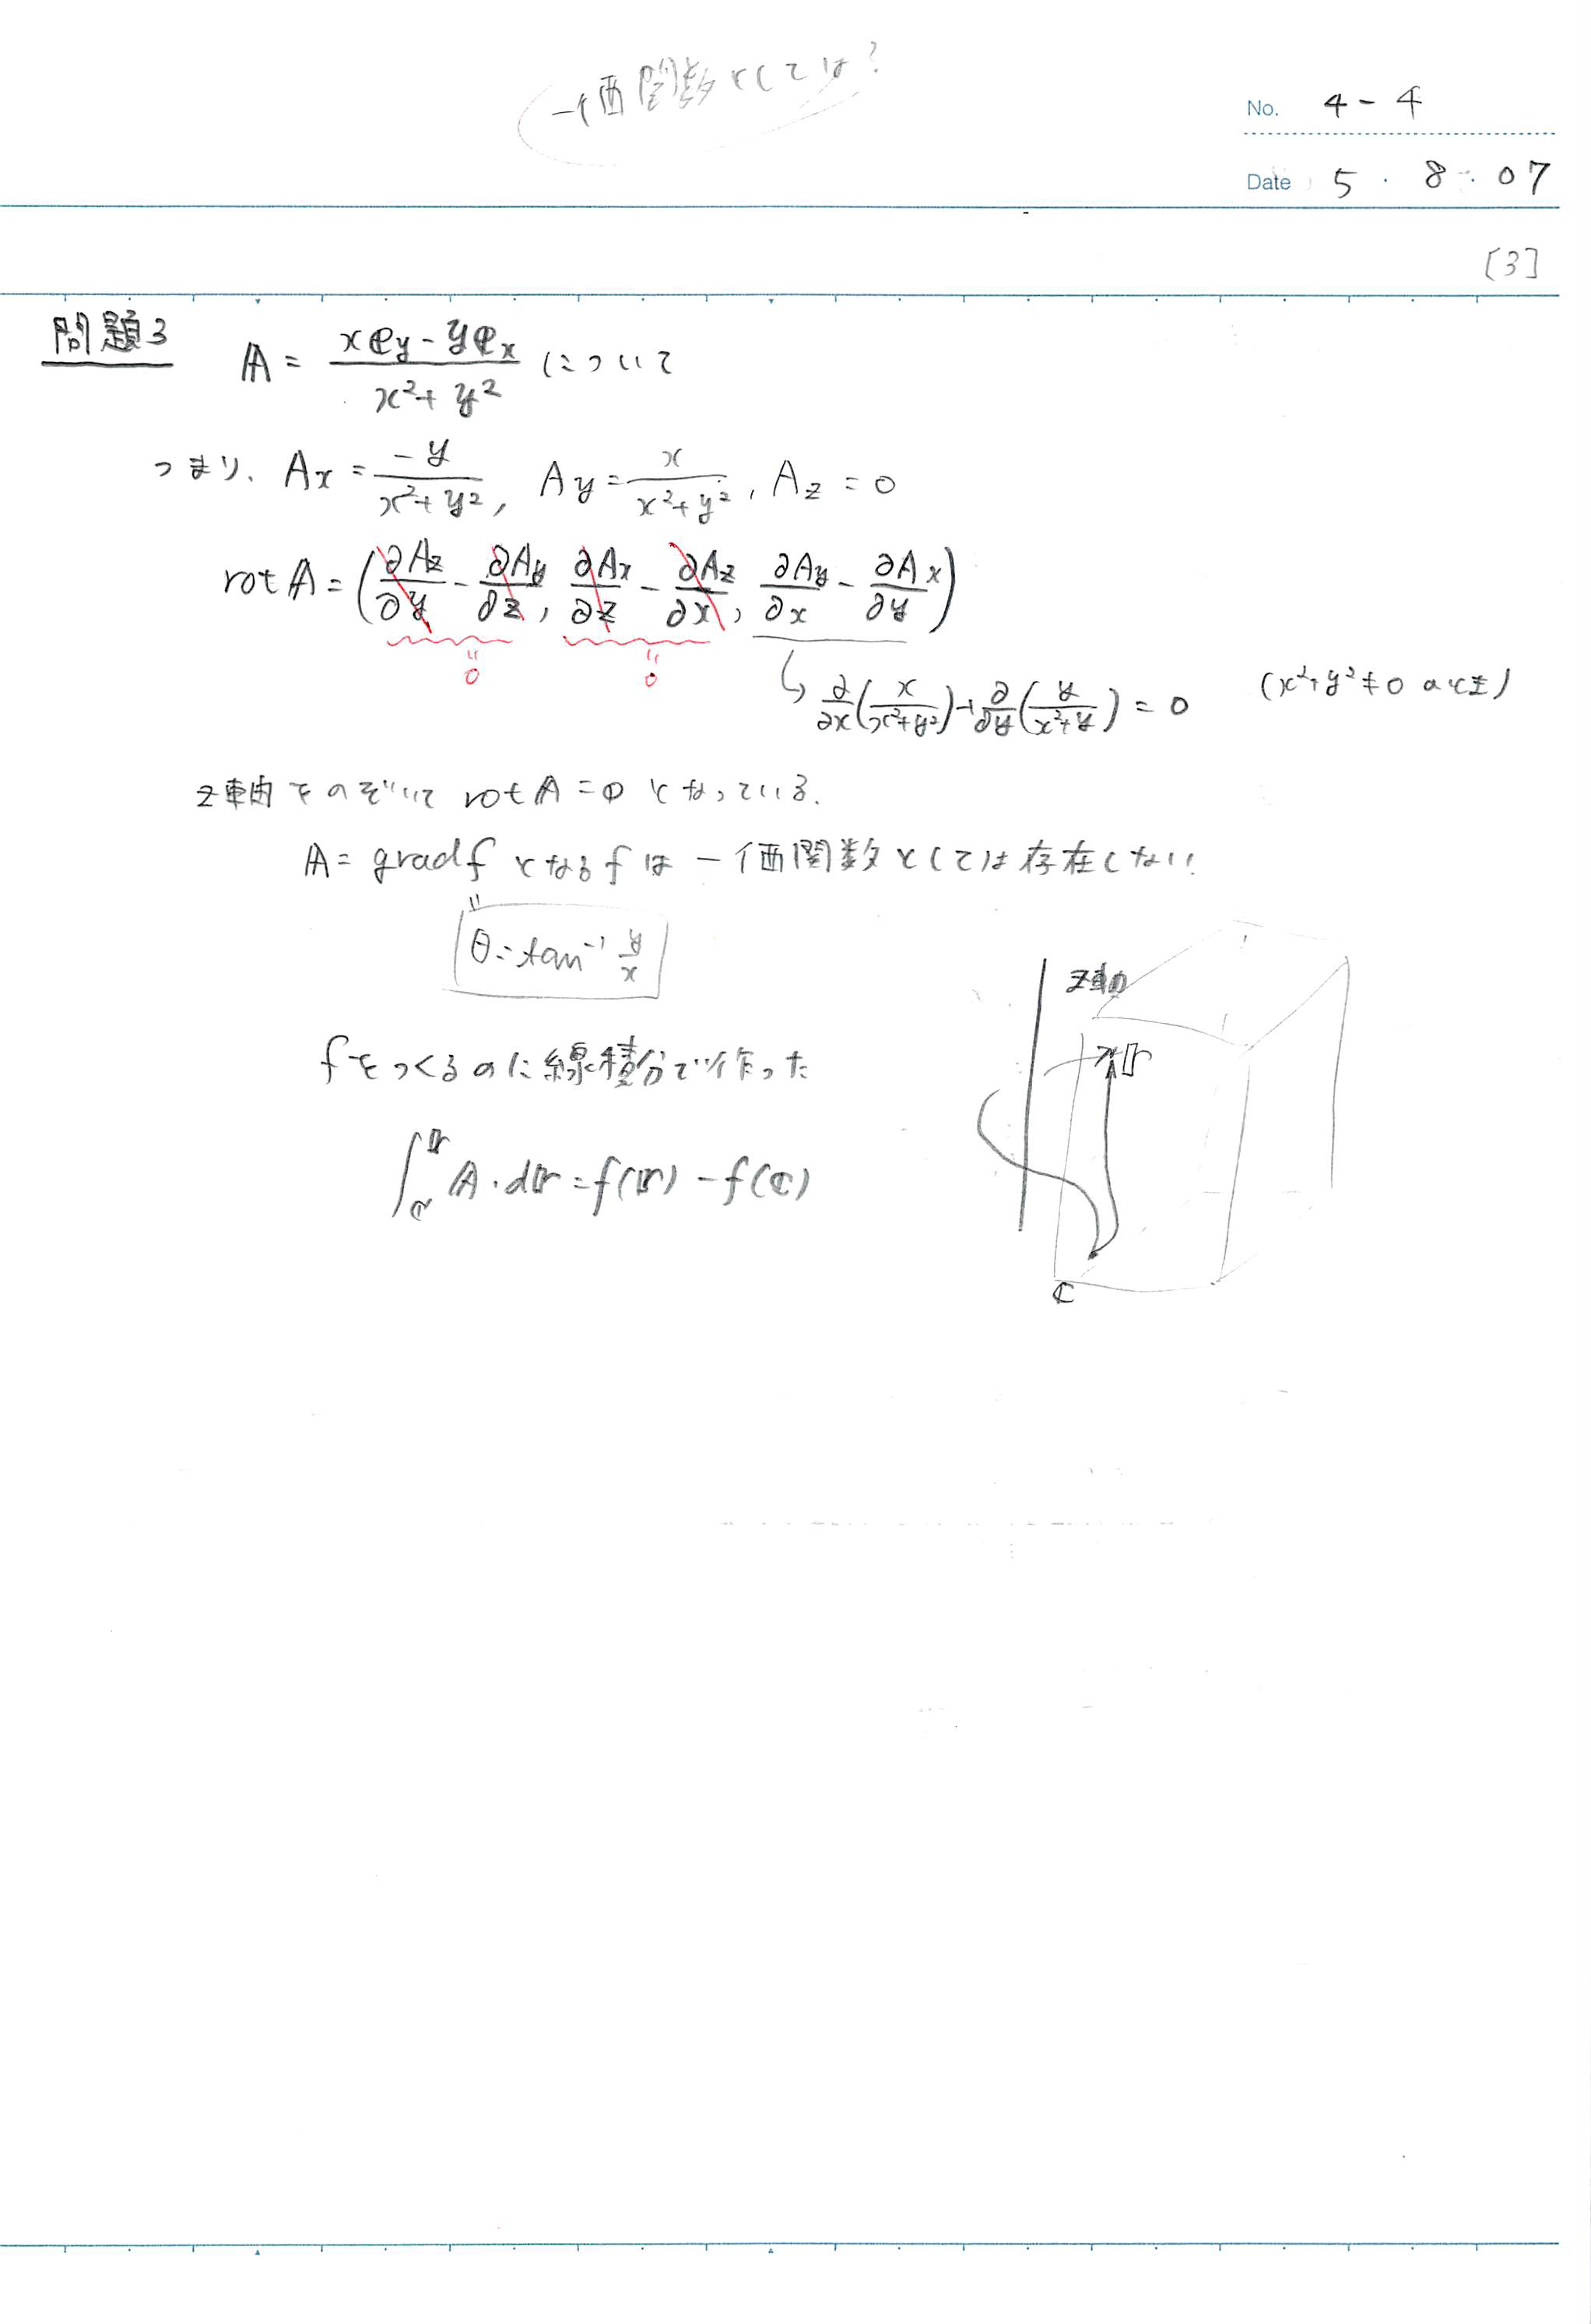 一価関数としては?
No. 4-4
Date 5・8・07
[3]
問題3 A = (x e_y - y e_x)/(x²+y²) について
つまり、Ax = -y/(x²+y²), Ay = x/(x²+y²), Az = 0
rot A = (∂Az/∂y - ∂Ay/∂z, ∂Ax/∂z - ∂Az/∂x, ∂Ay/∂x - ∂Ax/∂y)
"0 "0
↳ ∂/∂x(x/(x²+y²)) + ∂/∂y(y/(x²+y)) = 0 (x²+y²≠0 のとき)
z軸をのぞいて rot A = 0 となっている.
A = grad f となる f は一価関数としては存在しない.
"
θ = tan⁻¹ y/x
z軸
r
fをつくるのに線積分で作った
∫_c^r A・dr = f(r) - f(c)
c